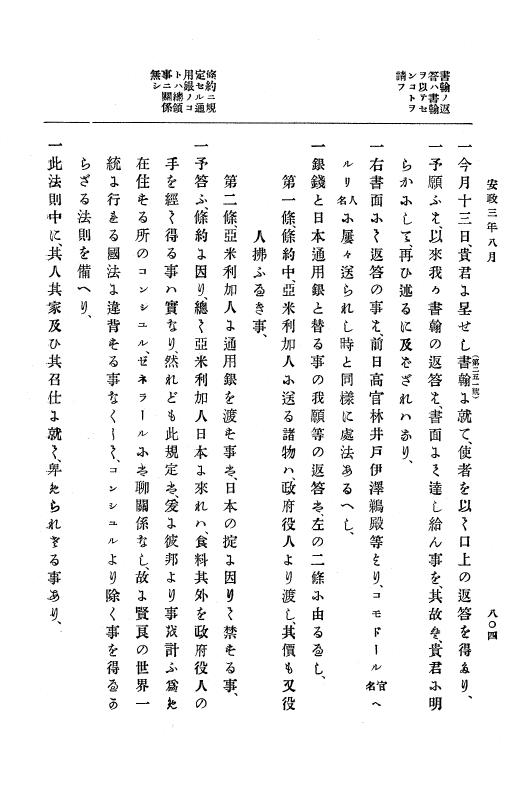 安政三年八月
八〇四
書翰ノ返
答ハ書翰
ヲ以テセ
ンコトヲ
請フ
條約ニ規
定セル通
用銀ノコ
トハ總領
事ニ關係
無シ
一今月十三日、貴君に呈せし書翰(第二五一號)に就て、使者を以て口上の返答を得たり、
一予願ふは、以來我カ書翰の返答は、書面にて達し給ん事を、其故は、貴君に明
らかにして、再ひ述るに及ざれハなり、
一右書面にて返答の事は、前日高官林井戸伊澤鵜殿等より、コモドール官名へ
ルリ人名に屢々送られし時と同樣に處法あるへし、
一銀錢と日本通用銀と替る事の我願等の返答は、左の二條に由るなるし、
第一條、條約中、亞米利加人に送る諸物ハ政府役人より渡し、其價も又役
人拂ふるき事、
第二條、亞米利加人に通用銀を渡そ事は、日本の掟に因りて禁せる事、
一予答ふ、條約に因り、總て亞米利加人日本に來れハ、食料其外を政府役人の
手を經て得る事ハ實なり、然れども此規定は、爰に彼邦より事を計ふ爲に
在住せる所のコンシュル、ゼネラールには聊關係なし、故に賢良の世界一
統に行はる國法に違背する事なくして、コンシュルより除く事を得るな
らざる法則を備へり、
一此法則中に、其人其家及ひ其召仕に就て、卑められさる事あり、